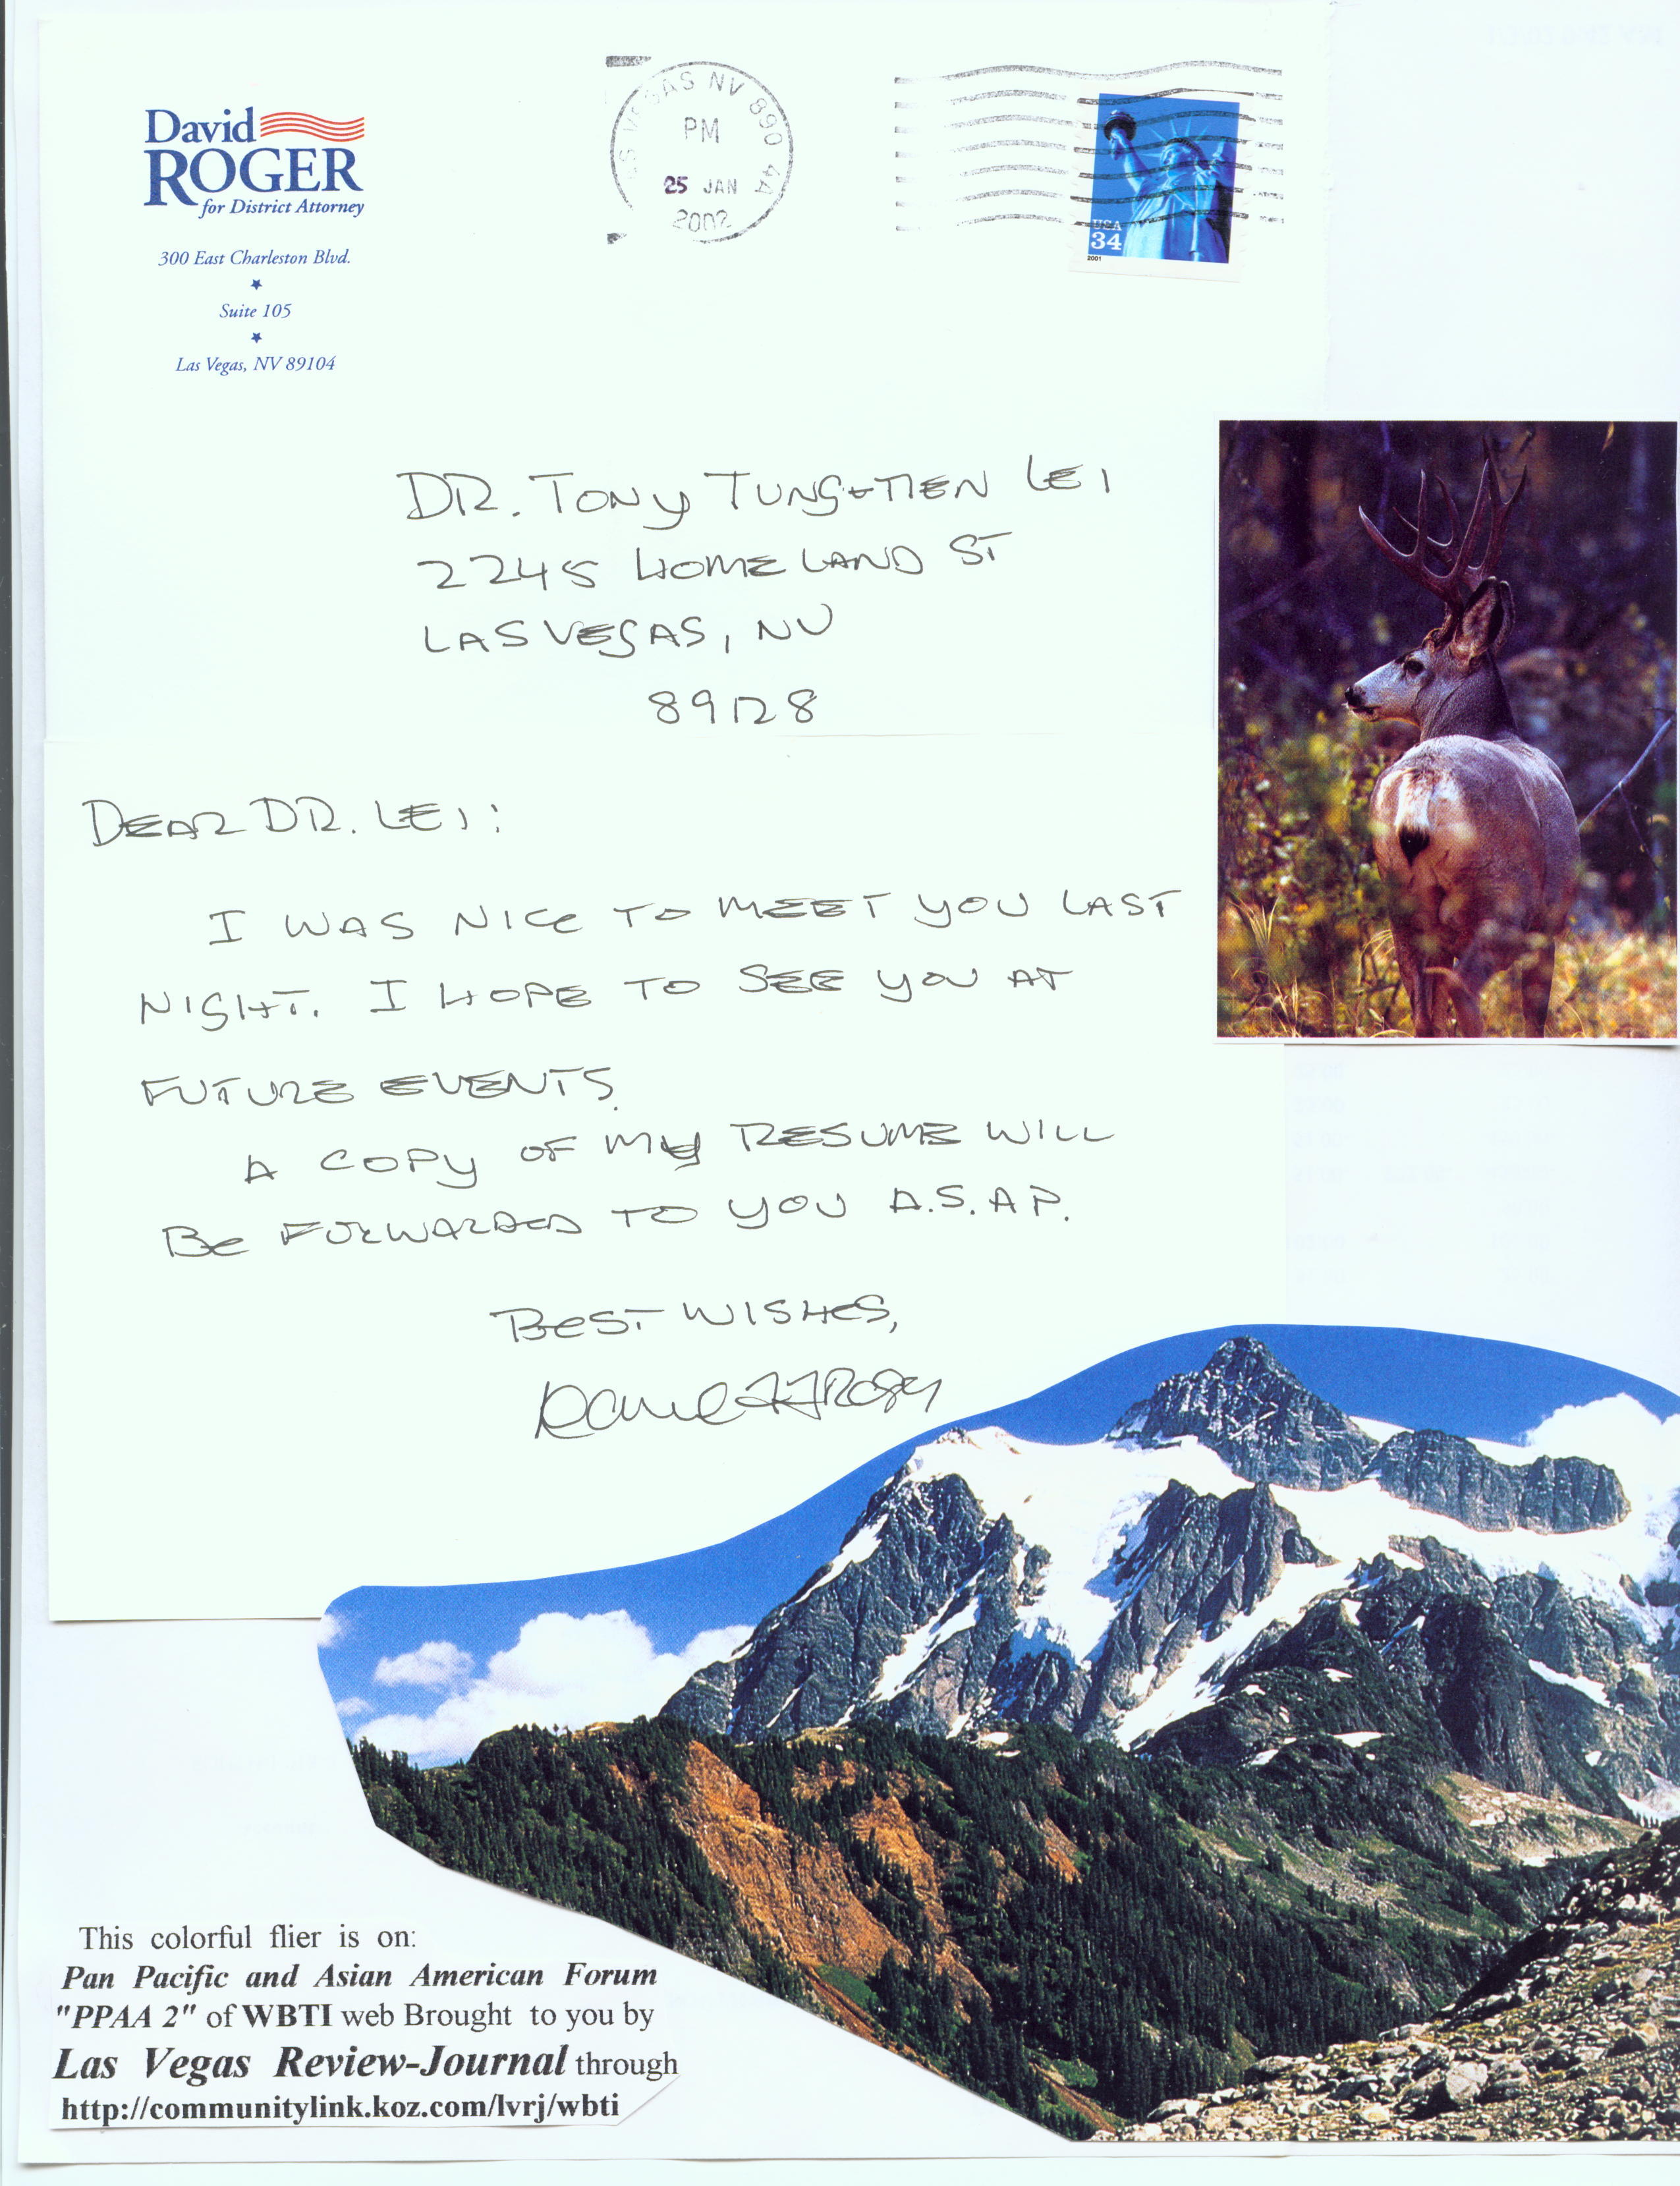 David
ROGER
for District Attorney
300 East Charleston Blvd.
Suite 105
Las Vegas, NV 89104
LAS VEGAS NV 890 44
PM
25 JAN
2002
USA
34
2001
DR. TONY TUNG-TIEN LEI
2245 HOMELAND ST
LAS VEGAS, NV
89128
DEAR DR. LEI:
I WAS NICE TO MEET YOU LAST
NIGHT. I HOPE TO SEE YOU AT
FUTURE EVENTS.
A COPY OF MY RESUME WILL
BE FORWARDED TO YOU A.S.A.P.
BEST WISHES,
This colorful flier is on:
Pan Pacific and Asian American Forum
"PPAA 2" of WBTI web Brought to you by
Las Vegas Review-Journal through
http://communitylink.koz.com/lvrj/wbti